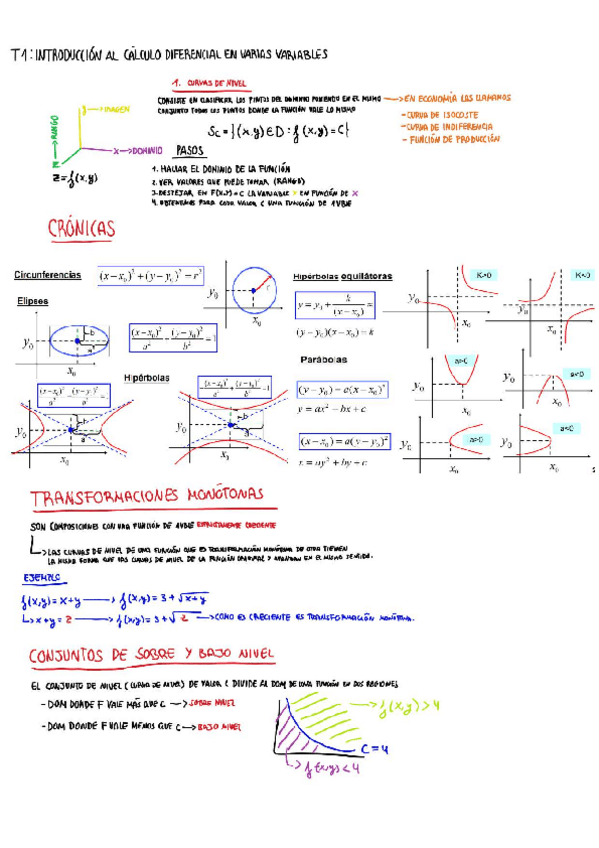 T1: INTRODUCCIÓN AL CÁLCULO DIFERENCIAL EN VARIAS VARIABLES
1. CURVAS DE NIVEL
CONSISTE EN CLASIFICAR LOS PUNTOS DEL DOMINIO PONIENDO EN EL MISMO
CONJUNTO TODOS LOS PUNTOS DONDE LA FUNCIÓN VALE LO MISMO
Sc = {(x,y) ∈ D : f(x,y) = C}
→ EN ECONOMÍA LAS LLAMAMOS
- CURVA DE ISOCOSTE
- CURVA DE INDIFERENCIA
- FUNCIÓN DE PRODUCCIÓN
→ IMAGEN
→ RANGO
X → DOMINIO
Z = f(x,y)
PASOS
1. HALLAR EL DOMINIO DE LA FUNCIÓN
2. VER VALORES QUE PUEDE TOMAR (RANGO)
3. DESPEJAR EN F(X,Y) = C LA VARIABLE Y EN FUNCIÓN DE X
4. OBTENEMOS PARA CADA VALOR C UNA FUNCIÓN DE 1 VBLE
CRÓNICAS
Circunferencias
(x − x₀)² + (y − y₀)² = r²
r
y₀
x₀
Elipses
(x − x₀)²/a² + (y − y₀)²/b² = 1
b
a
y₀
x₀
Hipérbolas
b
a
y₀
x₀
b
a
y₀
x₀
Hipérbolas equiláteras
(y − y₀)(x − x₀) = k
K>0
y₀
x₀
K<0
y₀
x₀
Parábolas
(y − y₀) = a(x − x₀)²
y = ax² + bx + c
(x − x₀) = a(y − y₀)²
x = ay² + by + c
a>0
y₀
x₀
a<0
y₀
x₀
a>0
y₀
x₀
a<0
y₀
x₀
TRANSFORMACIONES MONÓTONAS
SON COMPOSICIONES CON UNA FUNCIÓN DE 1 VBLE ESTRICTAMENTE CRECIENTE
→ LAS CURVAS DE NIVEL DE UNA FUNCIÓN QUE ES TRANSFORMACIÓN MONÓTONA DE OTRA TIENEN
LA MISMA FORMA QUE LAS CURVAS DE NIVEL DE LA FUNCIÓN ORIGINAL Y AVANZAN EN EL MISMO SENTIDO.
EJEMPLO
f(x,y) = x+y → f(x,y) = 3 + √x+y
↳ x+y = z → f(x,y) = 3 + √z → COMO ES CRECIENTE ES TRANSFORMACIÓN MONÓTONA.
CONJUNTOS DE SOBRE Y BAJO NIVEL
EL CONJUNTO DE NIVEL (CURVA DE NIVEL) DE VALOR C DIVIDE AL DOM DE UNA FUNCIÓN EN DOS REGIONES
- DOM DONDE F VALE MÁS QUE C → SOBRE NIVEL
- DOM DONDE F VALE MENOS QUE C → BAJO NIVEL
→ f(x,y) > 4
C = 4
↳ f(x,y) < 4